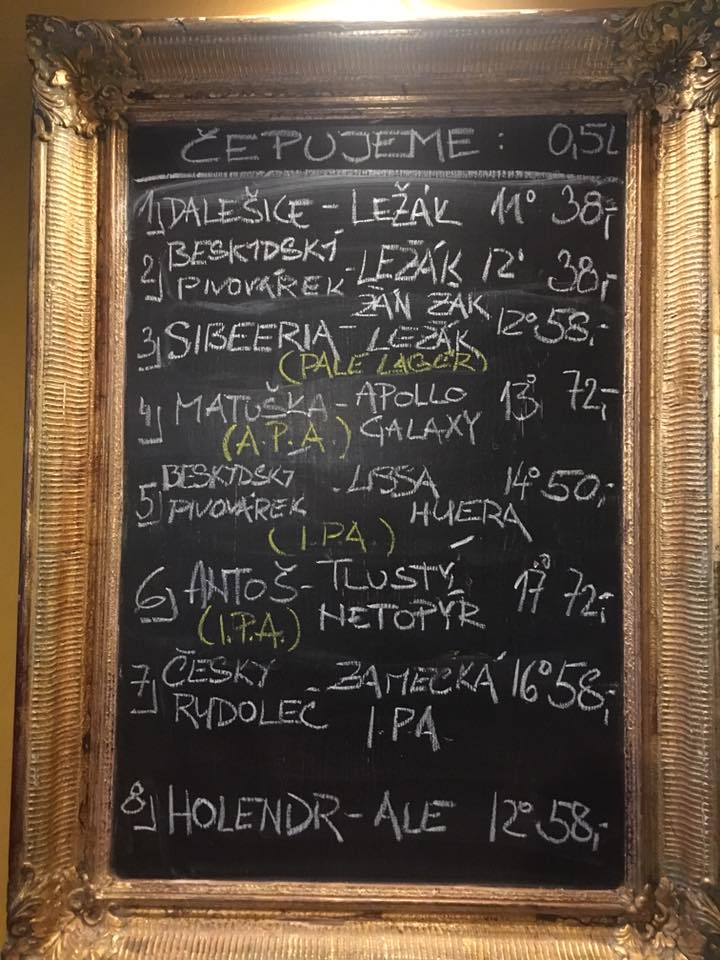 ČEPUJEME: 0,5L
1) DALEŠICE - LEŽÁK 11° 38,-
2) BESKYDSKÝ PIVOVÁREK - LEŽÁK 12° 38,-
ŽÁN ŽAK
3) SIBEERIA - LEŽÁK 12° 58,-
(PALE LAGER)
4) MATUŠKA - APOLLO GALAXY 13° 72,-
(A.P.A.)
5) BESKYDSKÝ PIVOVÁREK - LISSA HUERA 14° 50,-
(I.PA.)
6) ANTOŠ - TLUSTÝ NETOPÝR 17° 72,-
(I.P.A.)
7) ČESKY RUDOLEC - ZÁMECKÁ I.PA 16° 58,-
8) HOLENDR - ALE 12° 58,-